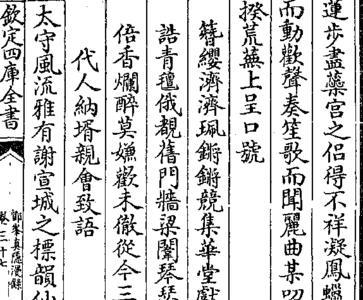 蓮步盡蘂宫之侣得不祥凝鳳蠟
而動歡聲奏笙歌而聞麗曲某叨
揆荒蕪上呈口號
簪纓濟濟珮鏘鏘競集華堂獻
誥青氊俄覩舊門墻梁闈琴琴
倍香爛醉莫嫌歡未徹從今三
代人納壻親會致語
太守風流雅有謝宣城之標韻仙
欽定四庫全書
鄮峯真隱漫録
卷三十七